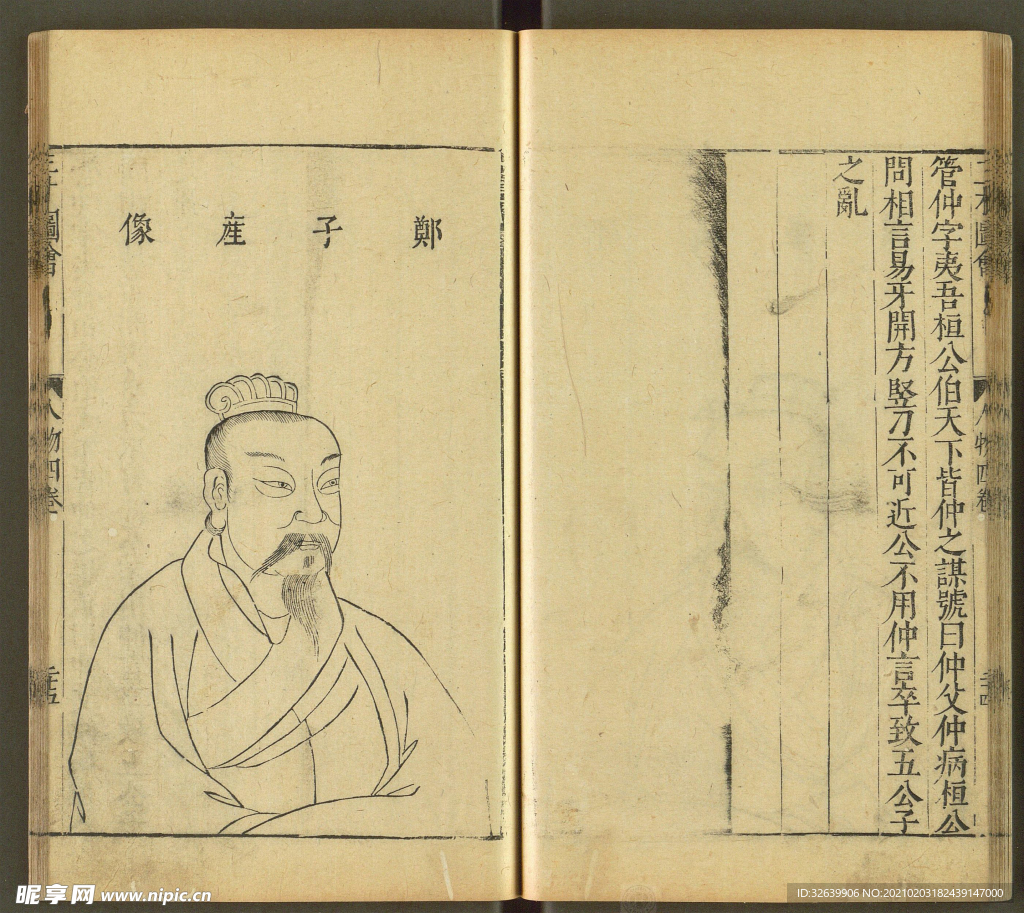 管仲字夷吾桓公伯天下皆仲之謀號曰仲父仲病桓公
問相言易牙開方竪刀不可近公不用仲言卒致五公子
之亂
圖會
人物四卷
鄭子産像
圖會
人物四卷
昵享网 www.nipic.cn
ID:32639906 NO:20210203182439147000